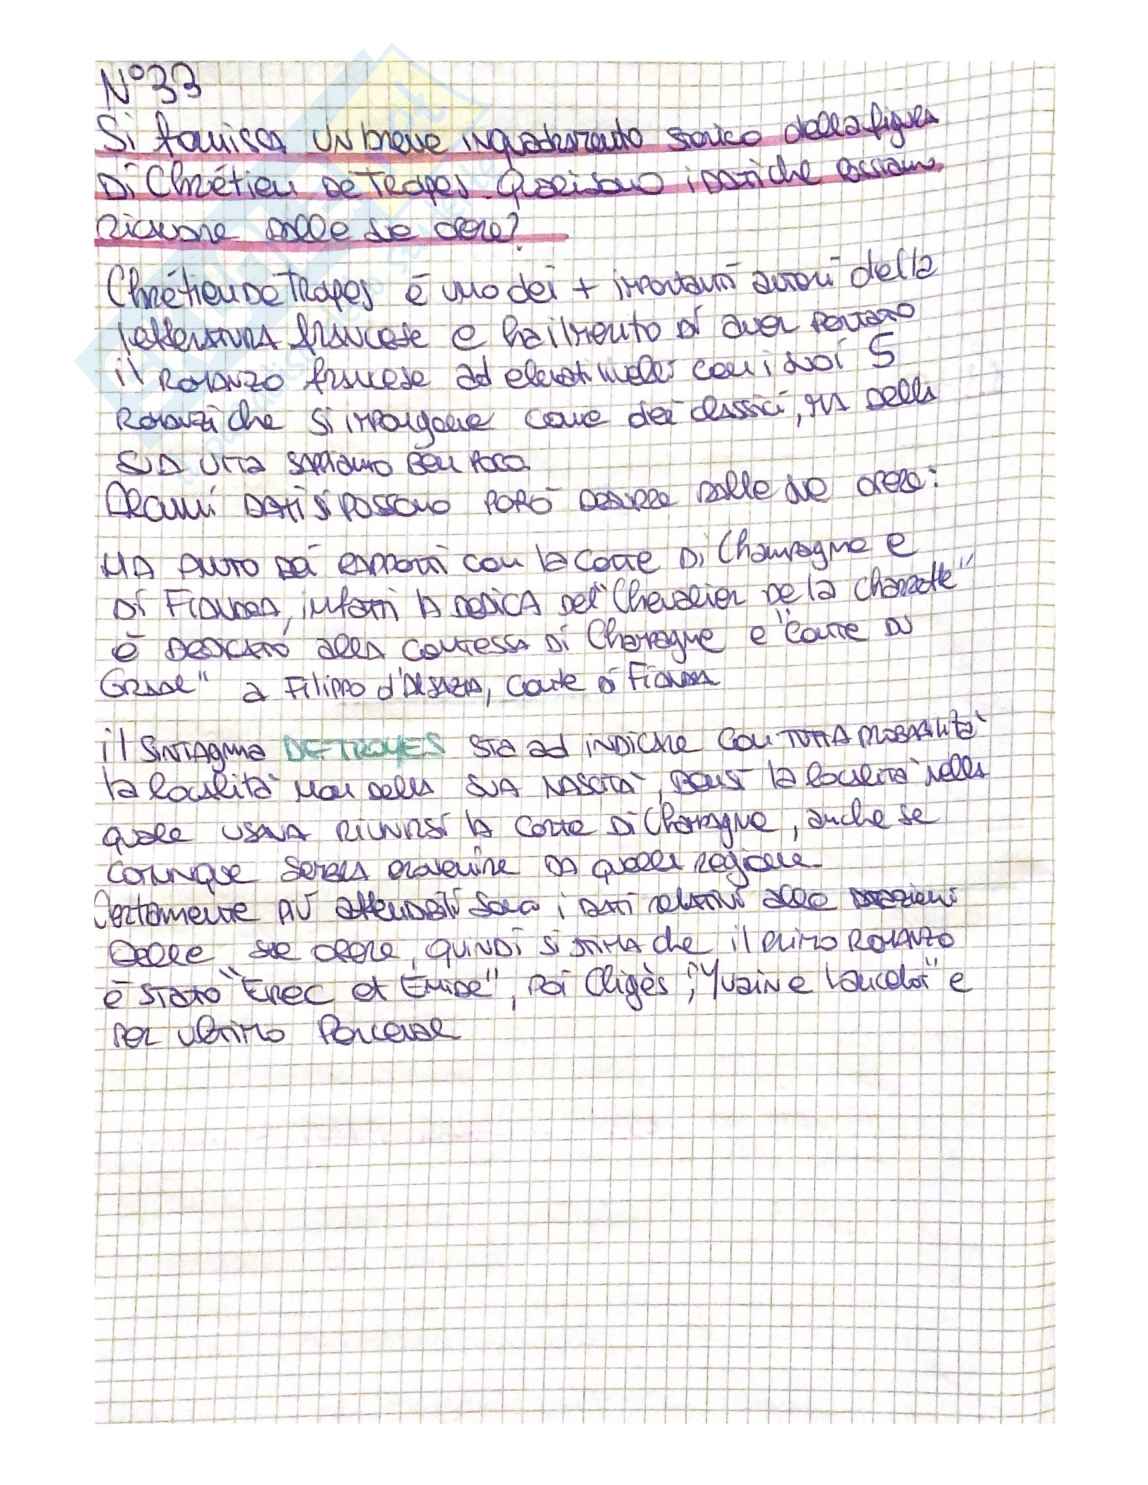 N°33
Si fornisca un breve inquadramento storico della figura
Di Chrétien De Troyes. Quali sono i dati che possiamo
Ricavare dalle sue opere?
Chrétien De Troyes è uno dei + importanti autori della
letteratura francese e ha il merito di aver portato
il Romanzo francese ad elevati livelli con i suoi 5
Romanzi che si impongono come dei classici, ma della
sua vita sappiamo ben poco.
Alcuni dati si possono però desumere dalle sue opere:
HA avuto rapporti con la corte Di Champagne e
Di Fiandra, infatti la dedica del "Chevalier De la Charrette"
è dedicato alla contessa Di Champagne e "Conte du
Graal" a Filippo d'Alsazia, Conte di Fiandra
il sintagma DE TROYES sta ad indicare con tutta probabilità
la località non della sua nascita, bensì la località nella
quale usava riunirsi la corte Di Champagne, anche se
comunque sembra provenire da quella regione.
Certamente più attendibili sono i dati relativi alle
delle sue opere, quindi si stima che il primo Romanzo
è stato "Erec et Enide", poi Cligès, "Yvain e Lancelot" e
per ultimo Perceval